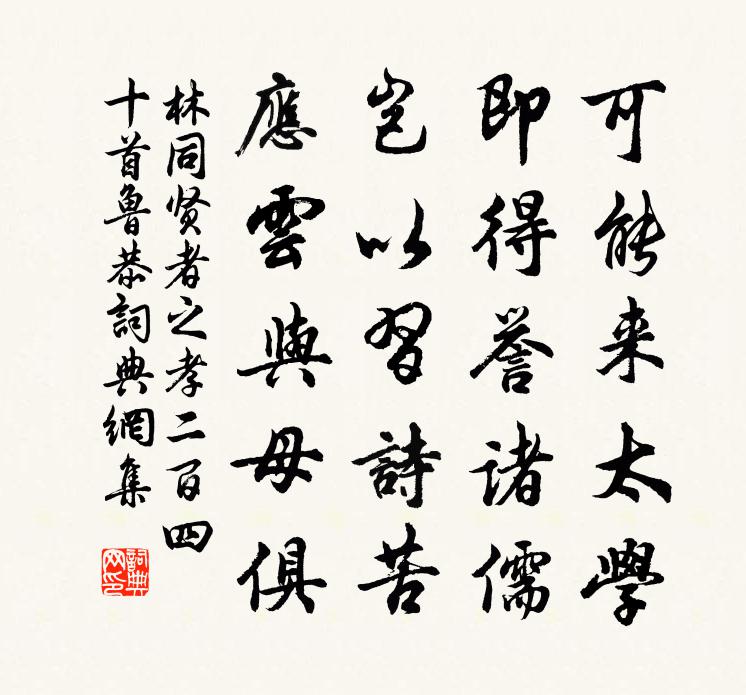 可能来太學
即得譽諸儒
豈以習詩苦
應雲與母俱
林同贤者之孝二百四
十首魯恭詞典網集
詞典
网印